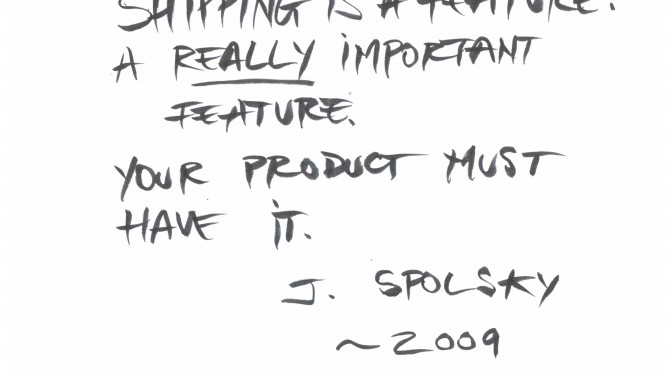 SHIPPING IS A FEATURE.
A REALLY IMPORTANT
FEATURE.
YOUR PRODUCT MUST
HAVE IT.
J. SPOLSKY
~2009